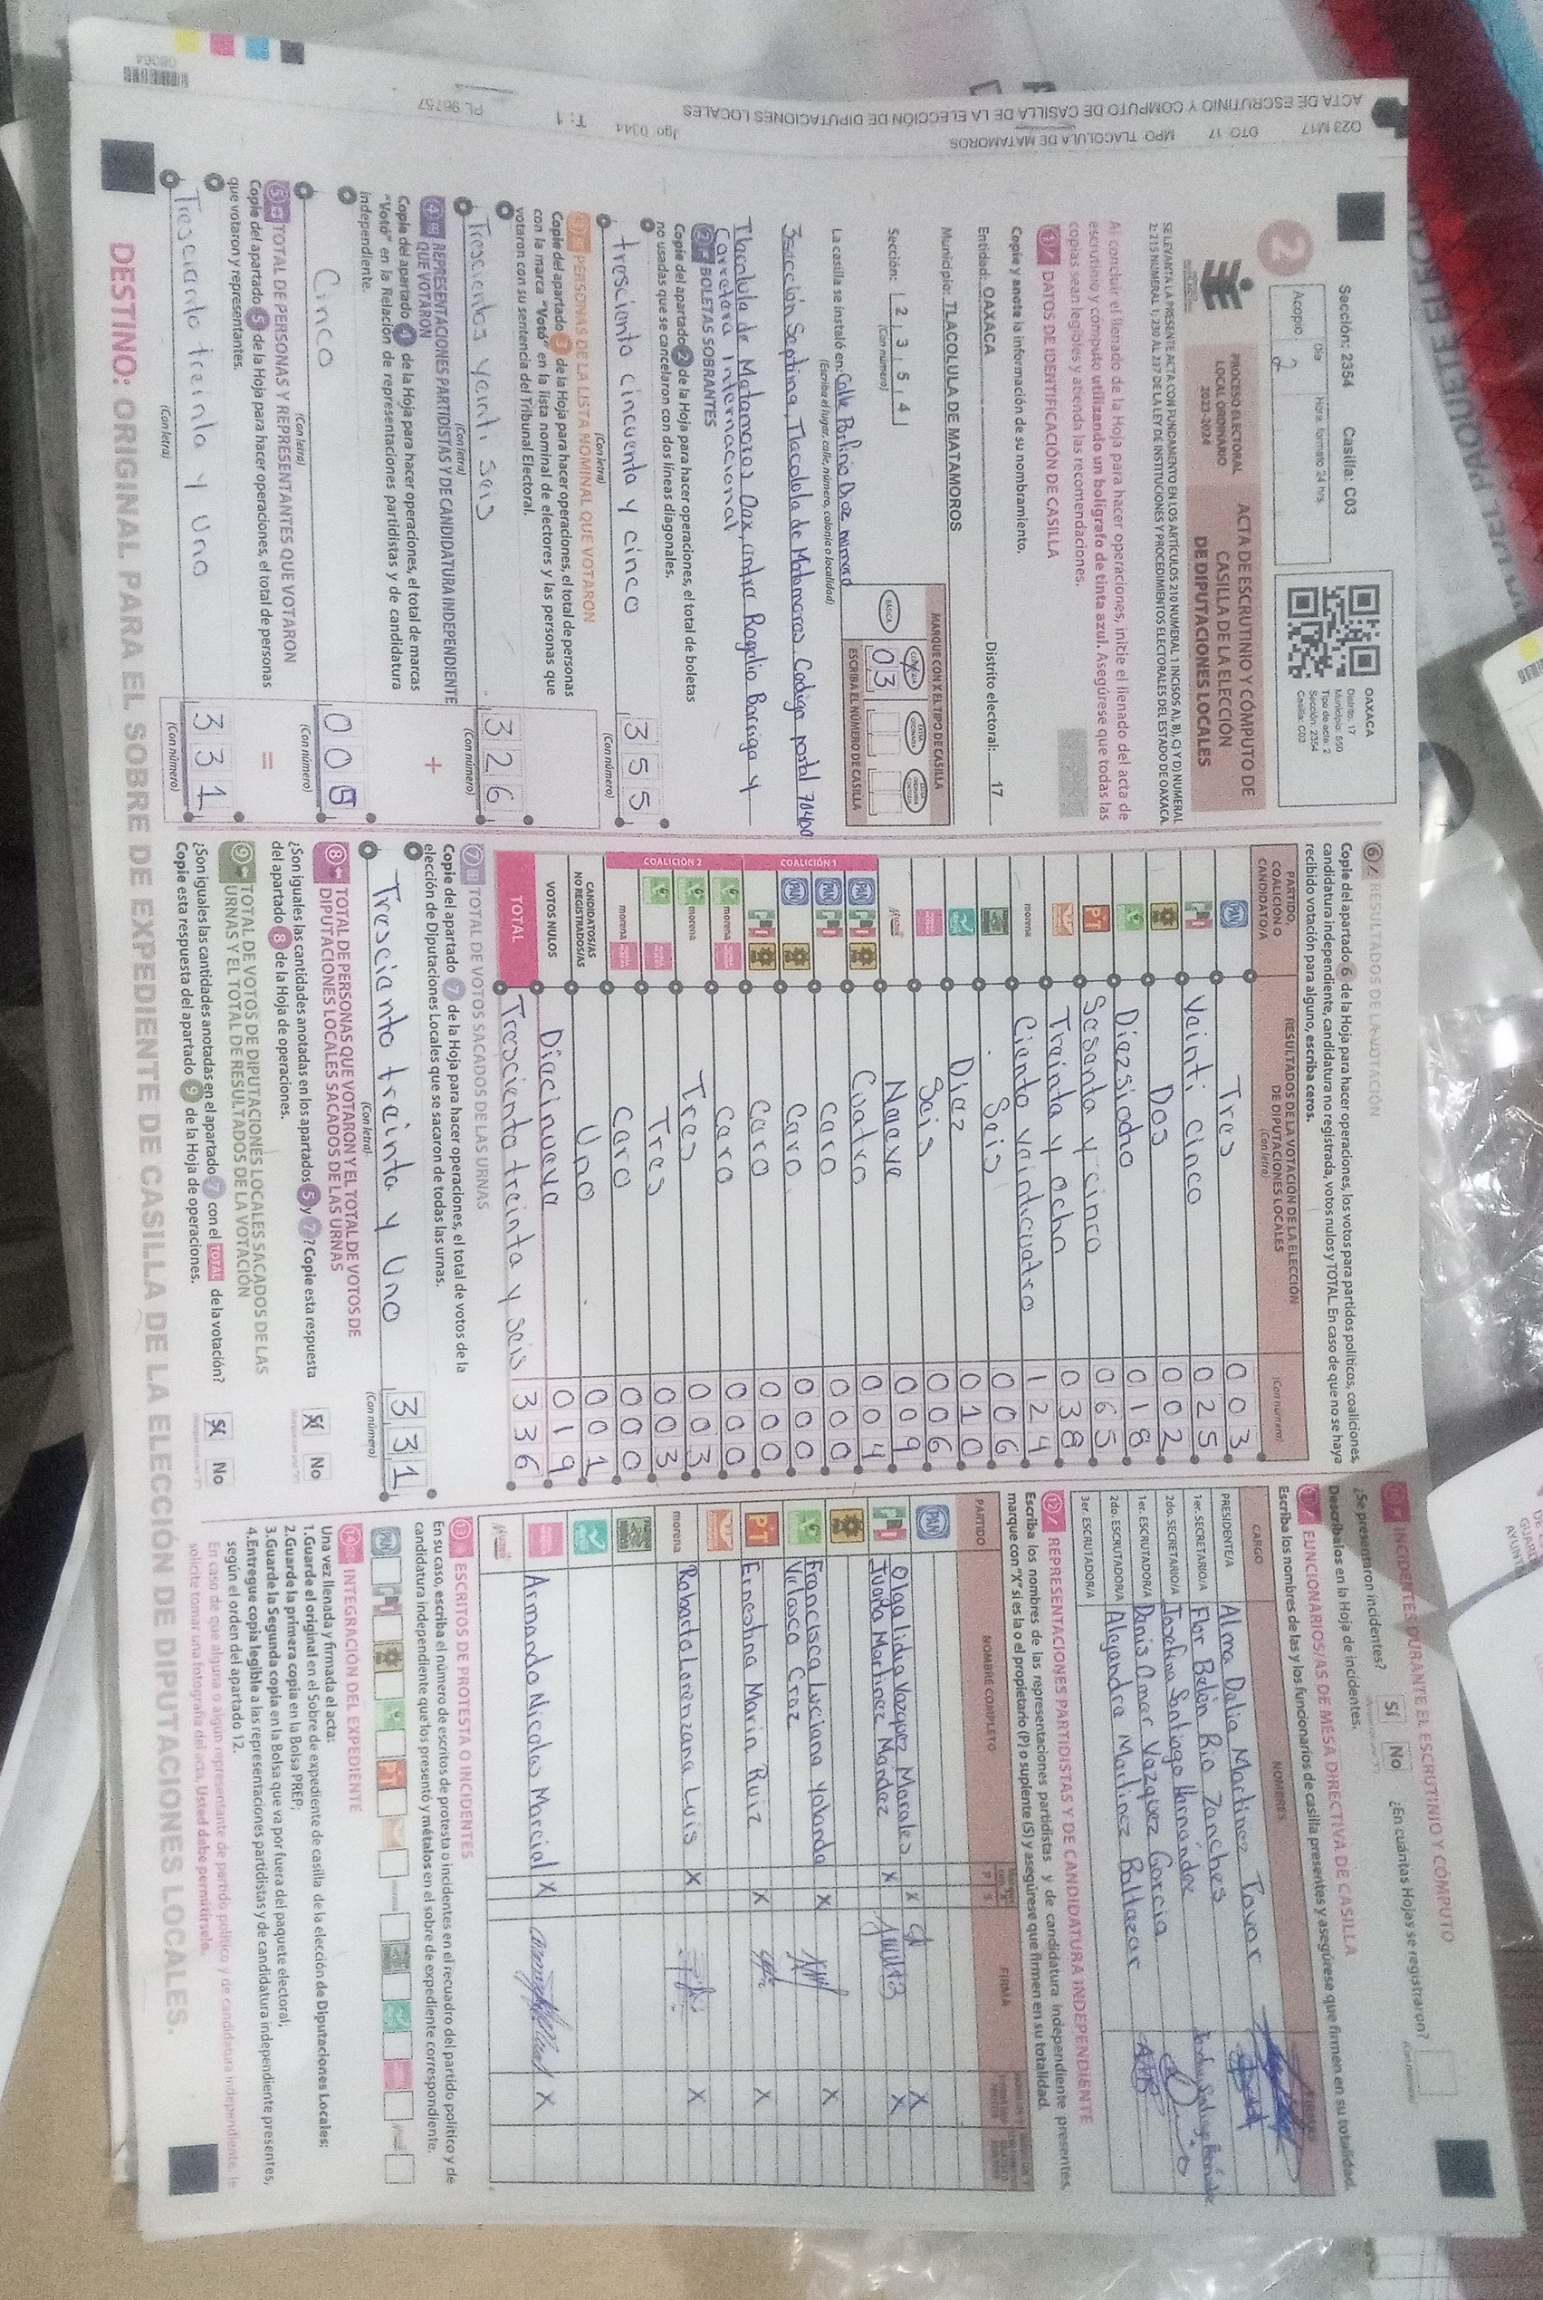 Sección: 2354 Casilla: C03
Día Hora: formato 24 hrs.
Acopio
2
OAXACA
Distrito: 17
Municipio: 550
Tipo de acta: 2
Sección: 2354
Casilla: C03
PROCESO ELECTORAL
LOCAL ORDINARIO
2023-2024
ACTA DE ESCRUTINIO Y CÓMPUTO DE
CASILLA DE LA ELECCIÓN
DE DIPUTACIONES LOCALES
SE LEVANTA LA PRESENTE ACTA CON FUNDAMENTO EN LOS ARTÍCULOS 210 NUMERAL 1 INCISOS A), B), C) Y D) NUMERAL
2; 215 NUMERAL 1; 230 AL 237 DE LA LEY DE INSTITUCIONES Y PROCEDIMIENTOS ELECTORALES DEL ESTADO DE OAXACA.
Al concluir el llenado de la Hoja para hacer operaciones, inicie el llenado del acta de
escrutinio y cómputo utilizando un bolígrafo de tinta azul. Asegúrese que todas las
copias sean legibles y atienda las recomendaciones.
1 DATOS DE IDENTIFICACIÓN DE CASILLA
Copie y anote la información de su nombramiento.
Entidad: OAXACA Distrito electoral: 17
Municipio: TLACOLULA DE MATAMOROS
Sección: 2 3 5 4
(Con número)
MARQUE CON X EL TIPO DE CASILLA
BÁSICA
03
ESCRIBA EL NÚMERO DE CASILLA
La casilla se instaló en: Calle Porfirio Diaz numero
(Escriba el lugar, calle, número, colonia o localidad)
3seccion Septima, Tlacolula de Matamoros. Codigo postal 70400
Tlacolula de Matamoros Oax, entre Rogelio Barriga y
Carretera Internacional
2 BOLETAS SOBRANTES
Copie del apartado 2 de la Hoja para hacer operaciones, el total de boletas
no usadas que se cancelaron con dos líneas diagonales.
tresciento cincuenta y cinco 355
(Con letra) (Con número)
3 PERSONAS DE LA LISTA NOMINAL QUE VOTARON
Copie del apartado 3 de la Hoja para hacer operaciones, el total de personas
con la marca "Votó" en la lista nominal de electores y las personas que
votaron con su sentencia del Tribunal Electoral.
Trescientos veinti seis 326
(Con letra) (Con número)
4 REPRESENTACIONES PARTIDISTAS Y DE CANDIDATURA INDEPENDIENTE
QUE VOTARON
Copie del apartado 4 de la Hoja para hacer operaciones, el total de marcas
"Votó" en la Relación de representaciones partidistas y de candidatura
independiente.
+
Cinco 005
(Con letra) (Con número)
5 TOTAL DE PERSONAS Y REPRESENTANTES QUE VOTARON
Copie del apartado 5 de la Hoja para hacer operaciones, el total de personas
que votaron y representantes.
=
Tresciento treinta y Uno 331
(Con letra) (Con número)
6 RESULTADOS DE LA VOTACIÓN
Copie del apartado 6 de la Hoja para hacer operaciones, los votos para partidos políticos, coaliciones,
candidatura independiente, candidatura no registrada, votos nulos y TOTAL. En caso de que no se haya
recibido votación para alguno, escriba ceros.
PARTIDO,
COALICIÓN O
CANDIDATO/A
RESULTADOS DE LA VOTACIÓN DE LA ELECCIÓN
DE DIPUTACIONES LOCALES
(Con letra) (Con número)
PAN Tres 003
Veinti cinco 025
Dos 002
Dieziocho 018
PT Sesenta y cinco 065
Treinta y ocho 038
morena Ciento veinticuatro 124
Seis 006
Diez 010
Seis 006
Nueve 009
COALICIÓN 1
PAN Cuatro 004
PAN cero 000
PAN Cero 000
Cero 000
COALICIÓN 2
morena Cero 000
morena Tres 003
Tres 003
morena Cero 000
CANDIDATOS/AS
NO REGISTRADOS/AS Uno 001
VOTOS NULOS Diecinueve 019
TOTAL Tresciento treinta y seis 336
7 TOTAL DE VOTOS SACADOS DE LAS URNAS
Copie del apartado 7 de la Hoja para hacer operaciones, el total de votos de la
elección de Diputaciones Locales que se sacaron de todas las urnas.
Tresciento treinta y Uno 331
(Con letra) (Con número)
8 TOTAL DE PERSONAS QUE VOTARON Y EL TOTAL DE VOTOS DE
DIPUTACIONES LOCALES SACADOS DE LAS URNAS
¿Son iguales las cantidades anotadas en los apartados 5 y 7? Copie esta respuesta
del apartado 8 de la Hoja de operaciones.
Sí No
9 TOTAL DE VOTOS DE DIPUTACIONES LOCALES SACADOS DE LAS
URNAS Y EL TOTAL DE RESULTADOS DE LA VOTACIÓN
¿Son iguales las cantidades anotadas en el apartado 7 con el TOTAL de la votación?
Copie esta respuesta del apartado 9 de la Hoja de operaciones.
Sí No
10 INCIDENTES DURANTE EL ESCRUTINIO Y CÓMPUTO
¿Se presentaron incidentes? Sí No ¿En cuántas Hojas se registraron?
Descríbalos en la Hoja de incidentes.
11 FUNCIONARIOS/AS DE MESA DIRECTIVA DE CASILLA
Escriba los nombres de las y los funcionarios de casilla presentes y asegúrese que firmen en su totalidad.
CARGO NOMBRES
PRESIDENTE/A Alma Delia Martinez Tovar
1er. SECRETARIO/A Flor Belén Rio Zanches
2do. SECRETARIO/A Josefina Santiago Hernández
1er. ESCRUTADOR/A Denis Omar Vazquez Garcia
2do. ESCRUTADOR/A Alejandra Martinez Baltazar
3er. ESCRUTADOR/A
12 REPRESENTACIONES PARTIDISTAS Y DE CANDIDATURA INDEPENDIENTE
Escriba los nombres de las representaciones partidistas y de candidatura independiente presentes,
marque con "X" si es la o el propietario (P) o suplente (S) y asegúrese que firmen en su totalidad.
PARTIDO NOMBRE COMPLETO P S FIRMA
PAN Olga lidia Vazquez Morales X X
Juana Martinez Mendez X X
Francisca Luciana Yolanda X X
Velasco Cruz
PT Ernestina Marin Ruiz X X
morena Roberto Lorenzana Luis X X
Armando Nicolas Marcial X X
13 ESCRITOS DE PROTESTA O INCIDENTES
En su caso, escriba el número de escritos de protesta o incidentes en el recuadro del partido político y de
candidatura independiente que los presentó y métalos en el sobre de expediente correspondiente.
PAN PT
14 INTEGRACIÓN DEL EXPEDIENTE
Una vez llenada y firmada el acta:
1.Guarde el original en el Sobre de expediente de casilla de la elección de Diputaciones Locales;
2.Guarde la primera copia en la Bolsa PREP;
3.Guarde la Segunda copia en la Bolsa que va por fuera del paquete electoral;
4.Entregue copia legible a las representaciones partidistas y de candidatura independiente presentes,
según el orden del apartado 12.
En caso de que alguna o algún representante de partido político y de candidatura independiente, le
solicite tomar una fotografía del acta, Usted debe permitírselo.
DESTINO: ORIGINAL PARA EL SOBRE DE EXPEDIENTE DE CASILLA DE LA ELECCIÓN DE DIPUTACIONES LOCALES.
ACTA DE ESCRUTINIO Y COMPUTO DE CASILLA DE LA ELECCIÓN DE DIPUTACIONES LOCALES
023 M17 DTO 17 MPO TLACOLULA DE MATAMOROS
Jgo 0344 T: 1 PL 96757